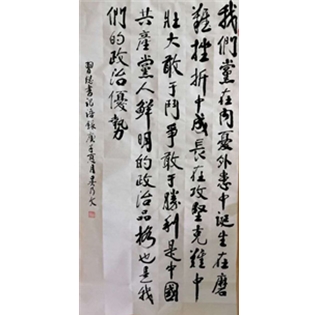 我們黨在内憂外患中诞生在磨
難挫折中成長在攻堅克難中
壯大敢于鬥爭敢于勝利是中國
共産黨人鮮明的政治品格也是我
們的政治優勢
習總書记语録